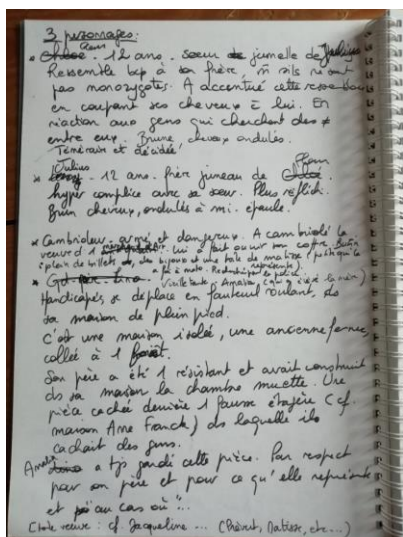 3 personnages :
Fleur
* Chloé - 12 ans. soeur de jumelle de Julius
Ressemble bcp à son frère, m s'ils ne sont
pas monozygotes. A accentué cette ressemblance
en coupant ses cheveux à lui. En
réaction aux gens qui cherchent des ≠
entre eux. Brune, cheveux ondulés.
Téméraire et décidée
Julius
* 12 ans. frère jumeau de Chloé.
hyper complice avec sa soeur. Plus réfléchi.
Brun cheveux, ondulés à mi-épaule.
* Cambrioleur armé et dangereux. A cambriolé la
veuve d'1 lui a fait ouvrir son coffre. Butin
: plein de billets, des bijoux et une toile de matisse (
a fui à moto. Recherché par la police.
* Gd-père Lino.
Handicapée, se déplace en fauteuil roulant, ds
sa maison de plein pied.
C'est une maison isolée, une ancienne ferme,
collée à 1 forêt.
Son père a été 1 résistant et avait construit
ds sa maison la chambre muette. Une
pièce cachée derrière 1 fausse étagère (cf.
maison Anne Franck) ds laquelle ils
cachait des gens.
a tjs gardé cette pièce. Par respect
pour son père et pour ce qu'elle représente
et "au cas où"...
veuve : cf. Jacqueline ... (Prévert, Matisse, etc...)